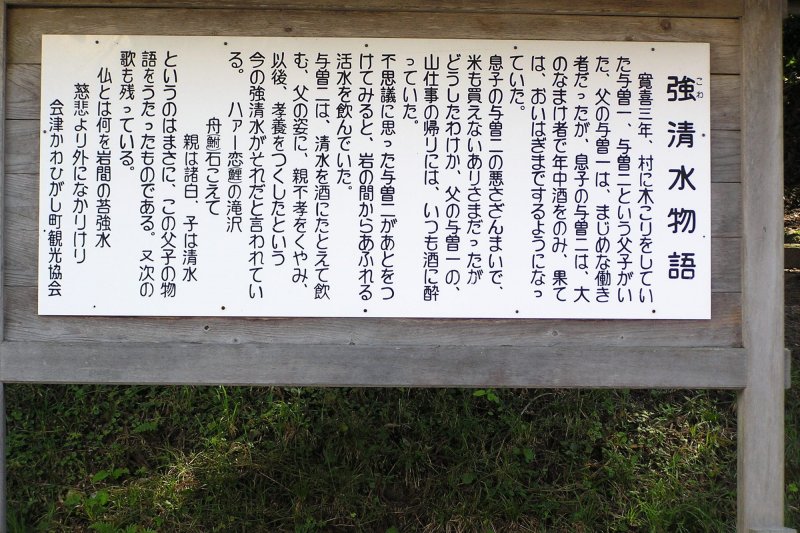 強清水物語
こわ
寛喜三年、村に木こりをしてい
た与曽一、与曽二という父子がい
た、父の与曽一は、まじめな働き
者だったが、息子の与曽二は、大
のなまけ者で年中酒をのみ、果て
は、おいはぎまでするようになっ
ていた。
息子の与曽二の悪さざんまいで、
米も買えないありさまだったが
どうしたわけか、父の与曽一の、
山仕事の帰りには、いつも酒に酔
っていた。
不思議に思った与曽二があとをつ
けてみると、岩の間からあふれる
活水を飲んでいた。
与曽二は、清水を酒にたとえて飲
む、父の姿に、親不孝をくやみ、
以後、孝養をつくしたという
今の強清水がそれだと言われてい
る。　ハァー恋鯉の滝沢
舟鮒石こえて
親は諸白、子は清水
というのはまさに、この父子の物
語をうたったものである。又次の
歌も残っている。
仏とは何を岩間の苔強水
慈悲より外になかりけり
会津かわひがし町観光協会